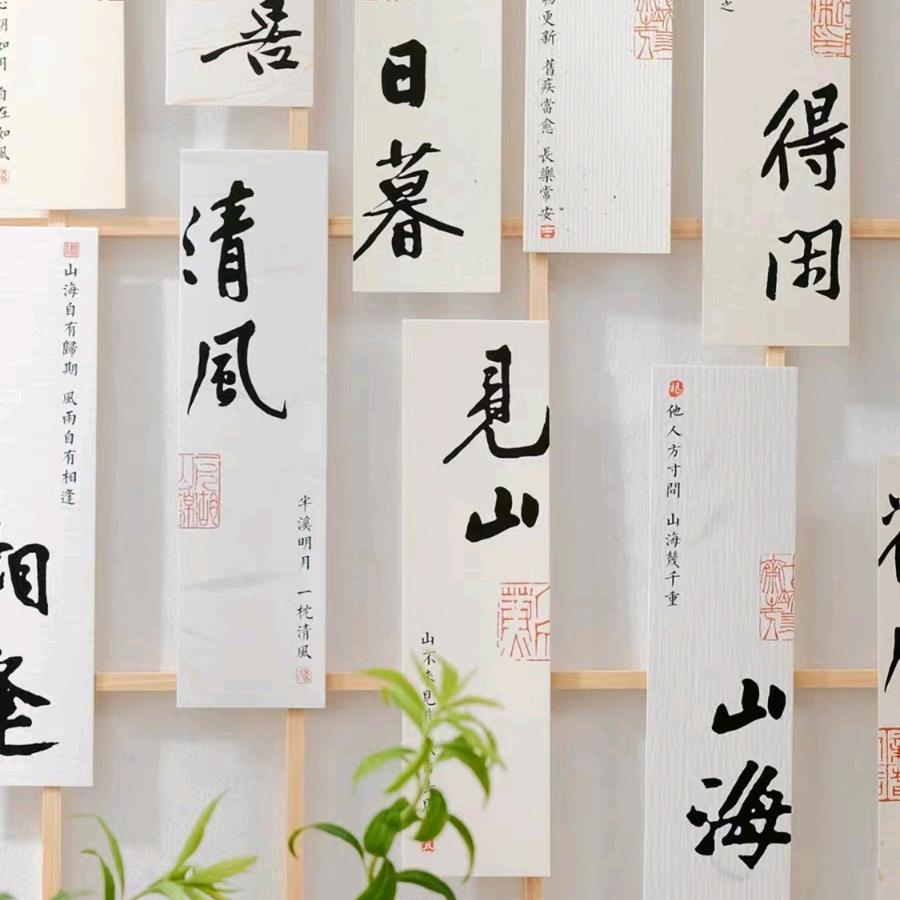 如月 自在如風
善
日暮
物更新 舊疾當愈 長樂常安
之
得閑
清風
半溪明月 一枕清風
山海自有歸期 風雨自有相逢
相逢
見山
山不來見
他人方寸間 山海幾千重
山海